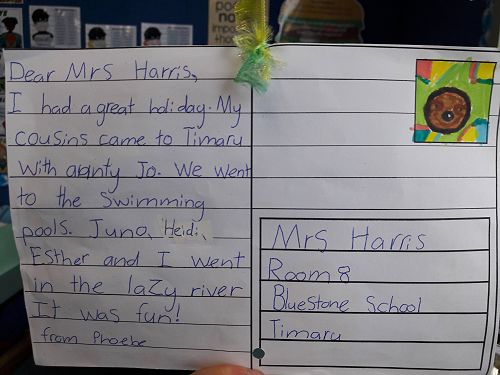 Dear Mrs Harris,
I had a great holiday. My
cousins came to Timaru
with aunty Jo. We went
to the swimming
pools. Juno, Heidi,
Esther and I went
in the lazy river
It was fun!
from Phoebe
Mrs Harris
Room 8
Bluestone School
Timaru